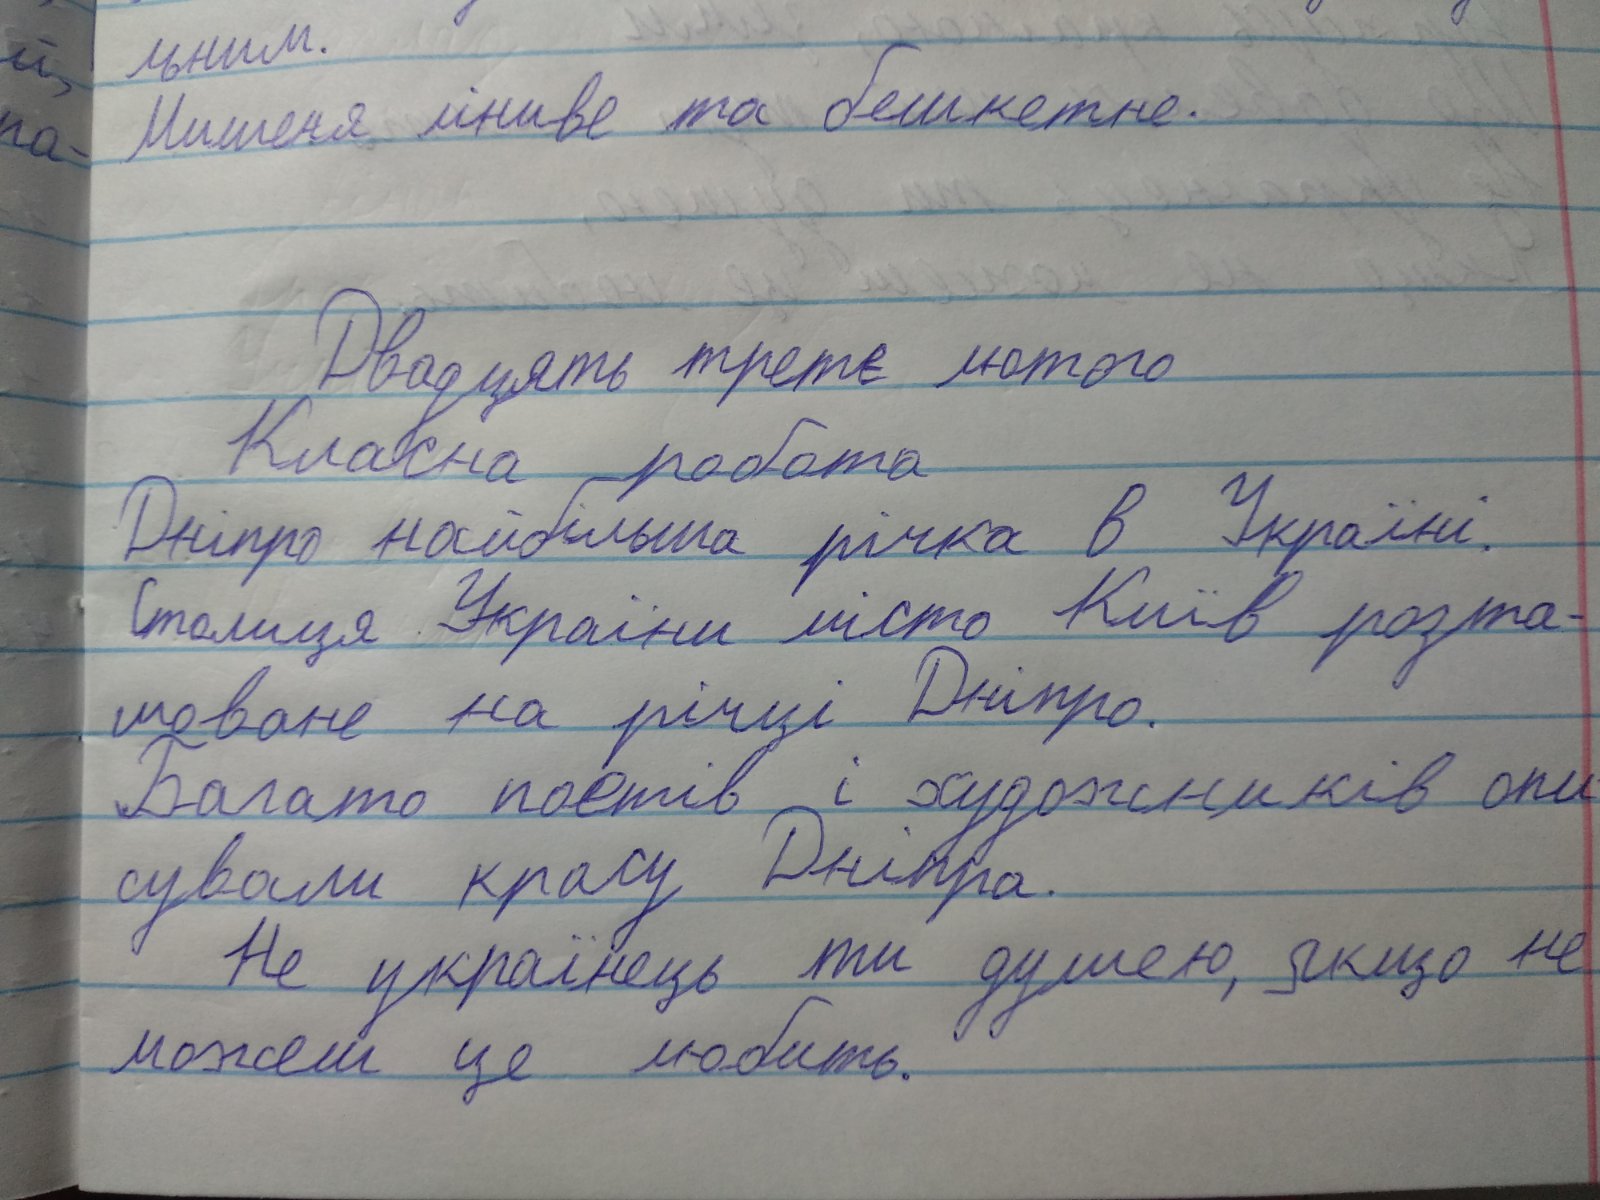 й,
льним.
па-
Мишеня ліниве та бешкетне.
Двадцять третє лютого
Класна робота
Дніпро найбільша річка в Україні.
Столиця України місто Київ розта-
шоване на річці Дніпро.
Багато поетів і художників опи
сували красу Дніпра.
Не українець ти душею, якщо не
можеш це любить.